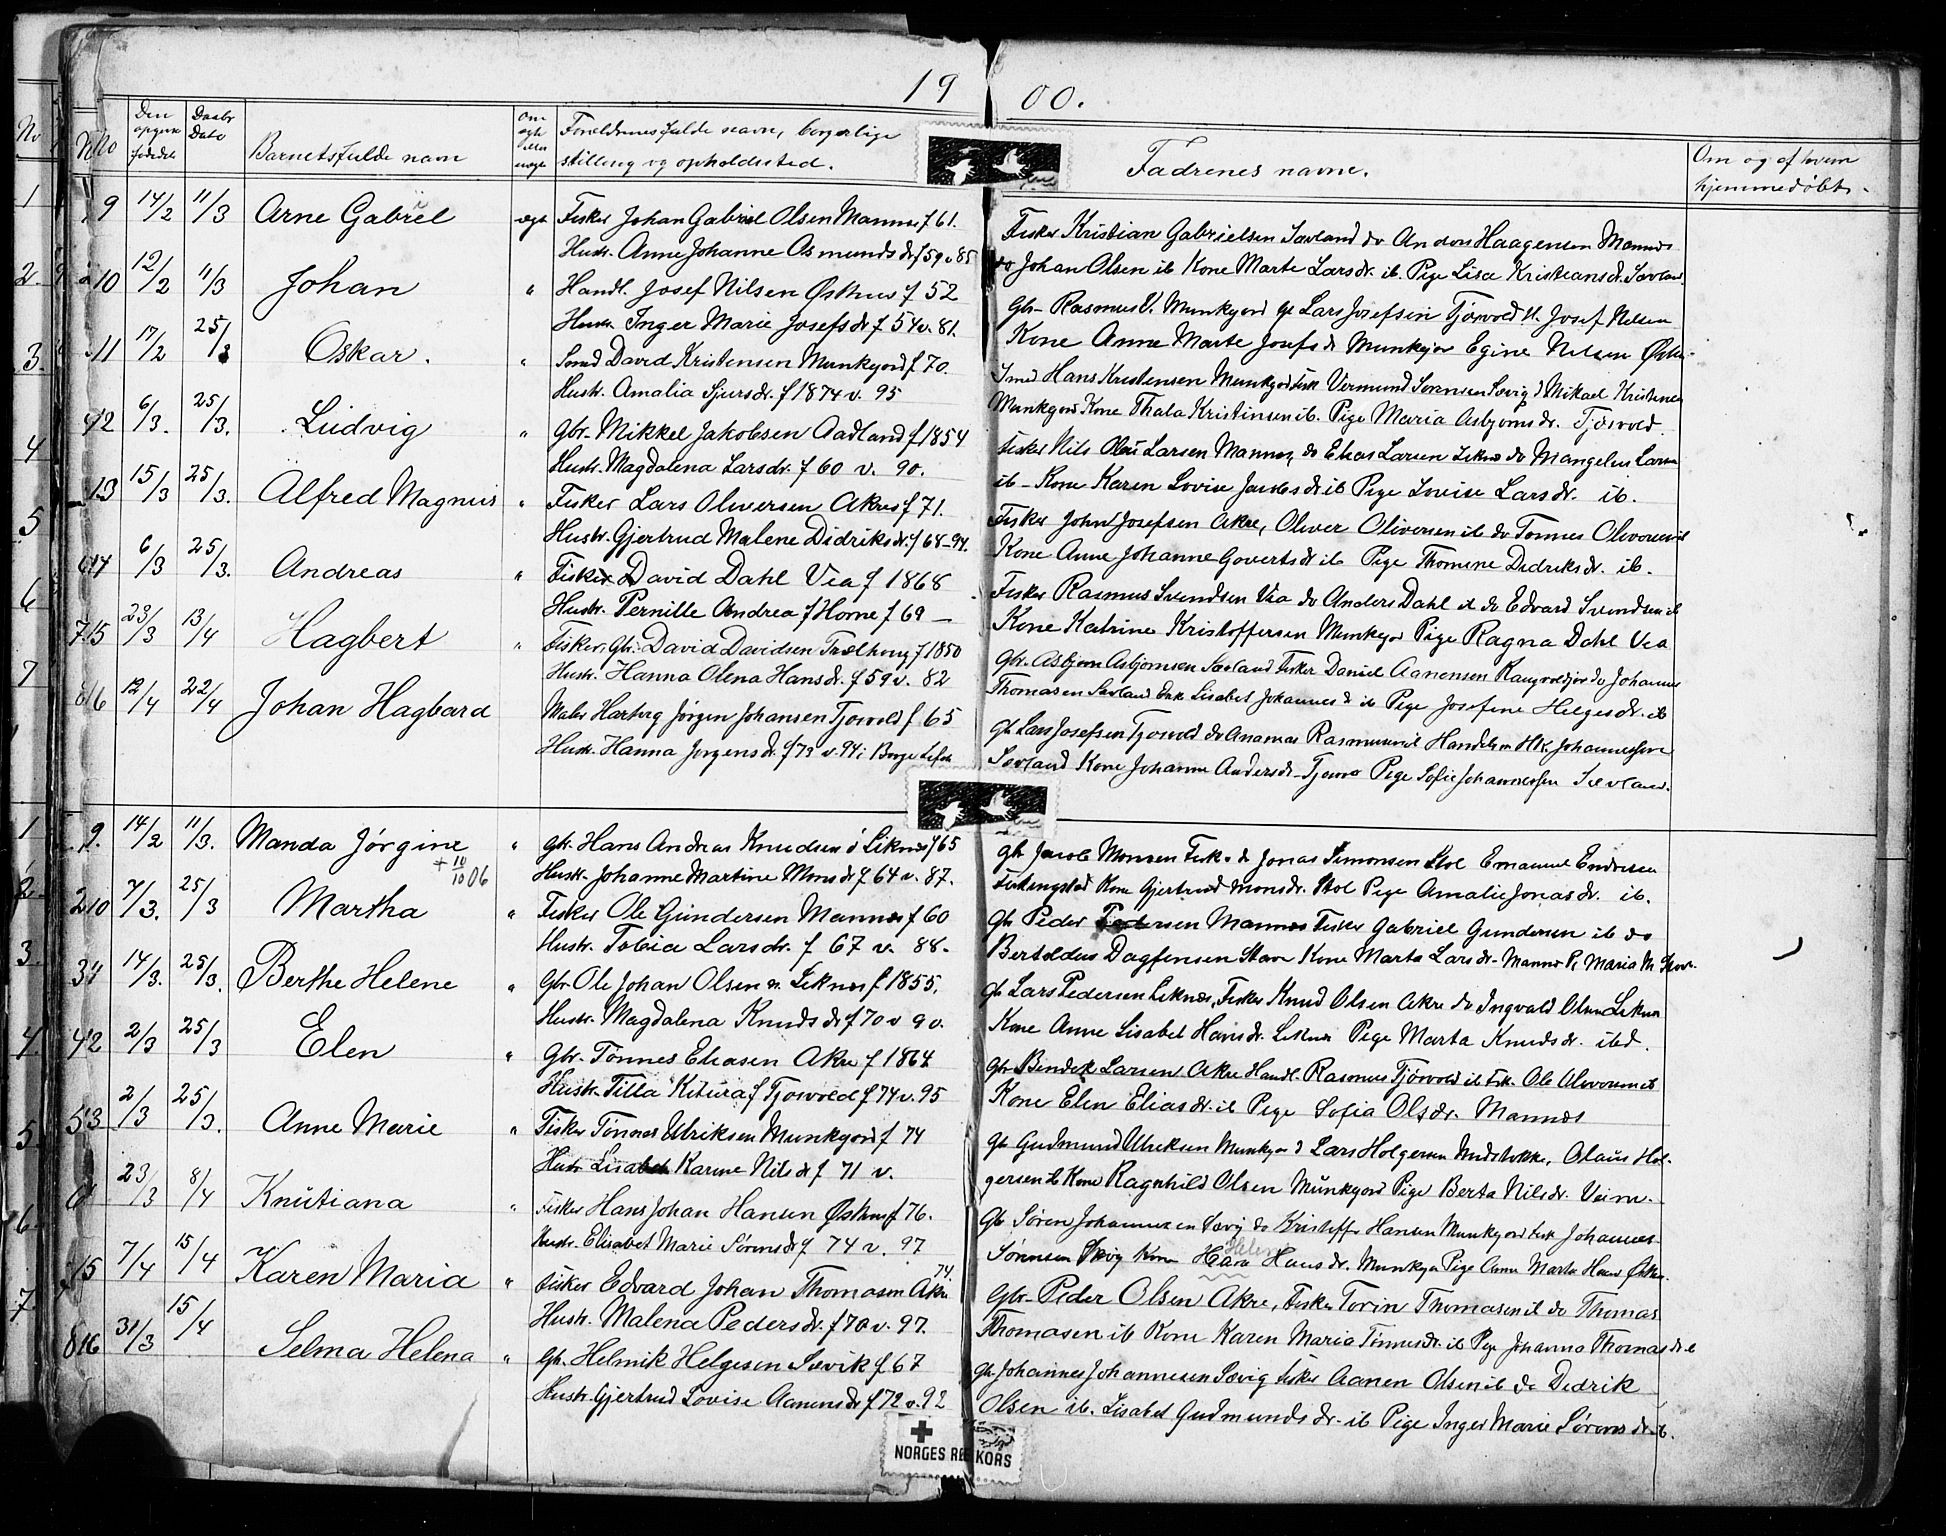 19 00.
No Den opgivne fødsdt Daabs Dato Barnets fulde navn Om ægte eller uægte Forældrenes fulde navn, borgerlige stilling og opholdssted. Fadrenes navne. Om og af hvem hjemmedøbt.
9 14/2 11/3 Arne Gabriel ægte Fisker Johan Gabriel Olsen Mannes f 61.
Hustr. Anne Johanne Osmundsdr f 59 v 85
Fisker Kristian Gabrielsen Sævland do Anders Haagensen Mannes
do Johan Olsen ib Kone Marte Larsdr. ib. Pige Lisa Kristiansdr. Sævland
10 12/2 11/3 Johan " Handl. Josef Nilsen Østhus f 52
Hustr. Inger Marie Josefsdr f 54 v. 81.
Gbr. Rasmus V. Munkejord Lars Josefsen Tjøsvold Josef Nilsen
Kone Anne Marte Josefsdr Munkejor Egine Nilsen
11 17/2 25/3 Oskar. " Smed David Kristensen Munkejord f 70.
Hustr. Amalia Sjursdr. f 1874 v. 95
Smed Hans Kristensen Munkjord Fisk Vermund Sørensen Sævig Mikael Kristensen
Munkejord Kone Thala Kristinsen ib. Pige Maria Asbjørnsdr. Tjøsvold
12 6/3. 25/3. Ludvig " Gbr. Mikkel Jakobsen Aadland f 1854
Hustr. Magdalena Larsdr. f 60 v. 90.
Fisker Nils Larsen Mannes, do Elias Larsen do Mangelus Larsen
ib - Kone Karen Lovise Jakobsdr ib Pige Lovise Larsdr. ib.
13 15/3 25/3. Alfred Magnus " Fisker Lars Oliversen Akre f 71.
Hustr. Gjertrud Malene Didriksdr. f 68 - 94.
Fisker John Josefsen Akre, Oliver Oliversen ib do Tønnes Oliversen ib
Kone Anne Johanne Govertsdr ib Pige Thomine Didriksdr. ib.
14 6/3 25/3. Andreas " Fisker David Dahl Vea f 1868
Hustr. Pernille Andrea f Horne f 69 —
Fisker Rasmus Svendsen Vea do Anders Dahl ib do Edvard Svendsen ib
Kone Katrine Kristoffersen Munkejor Pige Ragna Dahl Vea
15 23/3 13/4 Hagbert " Fisker, Gbr. David Davidsen Trælhoug f 1850
Hustr. Hanna Olena Hansdr. f 59 v. 82
Gbr. Asbjørn Asbjørnsen Sævland Fisker Daniel Aanensen do Johannes
Thomasen Sævland Lisabet Johannesdr ib Pige Josefine Helgesdr. ib
16 12/4 22/4 Johan Hagbard Maler Hartvig Jørgen Johansen Tjøsvold f 65
Hustr. Hanna Jørgensdr. f 73 v. 94 i Borge
Gbr Lars Josefsen Tjøsvold do Ananias Rasmussen ib Handelsm Johannessen
Sævland Kone Johanne Andersdr. Tjøsvo Pige Sofie Johannessen Sævland.
9. 14/2 11/3. Manda Jørgine + 10/10 06 " Gbr. Hans Andreas Knudsen Liknes f 65
Hustr. Johanne Martine Monsdr f 64 v. 87.
Gbr Jacob Monsen Fisk Jonas Simonsen Stol Emanuel Endresen
Kone Gjertrud Monsdr. Stol Pige Amalie Jonasdr. ib.
10 7/3. 25/3 Martha " Fisker Ole Gundersen Mannes f 60
Hustr. Tobia Larsdr. f 67 v. 88.
Gbr Peder Pedersen Mannes Fisker Gabriel Gundersen ib do
Bertoldus Dagfensen Stave Kone Marta Larsdr. Mannes P. Maria M.
14/3. 25/3. Berthe Helene " Gbr. Ole Johan Olsen Liknes f 1855.
Hustr. Magdalena Knudsdr f 70 v 90.
Gbr Lars Pedersen Liknes, Fisker Knud Olsen Akre do Ingvald Olsen Liknes
Kone Anne Lisabet Hansdr. Liknes Pige Marta Knudsdr. ibd.
12 2/3 25/3 Elen " Gbr. Tønnes Eliasen Akre f 1864
Hustr. Tilla Kitura f Tjøsvold f 74 v. 95
Gbr Bendik Larsen Akre Handl. Rasmus Tjøsvold ib Fisk. Ole Oliversen ib
Kone Elen Eliasdr. ib Pige Sofia Olsdr. Mannes
13 2/3 25/3. Anne Marie " Fisker Tønnes Ulriksen Munkejord f 74
Hustr Lisabet Karine Nilsdr f 71 v.
Gbr Gudmund Ulriksen Munkejor Lars Holgersen Midstokke, Olaus Hol-
gersen ib Kone Ragnhild Olsen Munkejord Pige Berta Nilsdr. Veim.
23/3 8/4 Knutiana " Fisker Hans Johan Hansen Østhus f 76.
Hustr. Elisabet Marie Sørensdr f 74 v. 97
Gbr Søren Johannessen Sævig do Kristoffer Hansen Munkejord Fisk Johannes
Sørensen Sævig Kone Helene Hansdr. Munkejor Pige Anne Marta
15 7/4 15/4 Karen Maria " Fisker Edvard Johan Thomasen Akre 74.
Hustr. Malena Pedersdr. f 70 v. 97.
Gbr. Peder Olsen Akre, Fisker Torin Thomasen ib do Thomas
Thomasen ib Kone Karen Maria Tønnesdr. ib Pige Johanna Thomasdr. ib
16 31/3 15/4 Selma Helena " Gbr. Helmik Helgesen Sævik f 67
Hustr. Gjertrud Lovise Aanensdr f 72 v. 92
Gbr Johannes Johannesen Sævig Fisker Aanen Olsen ib do Didrik
Olsen ib. Lisabet Gudmundsdr. ib Pige Inger Marie Sørensdr. ib.
NORGES RØDE KORS